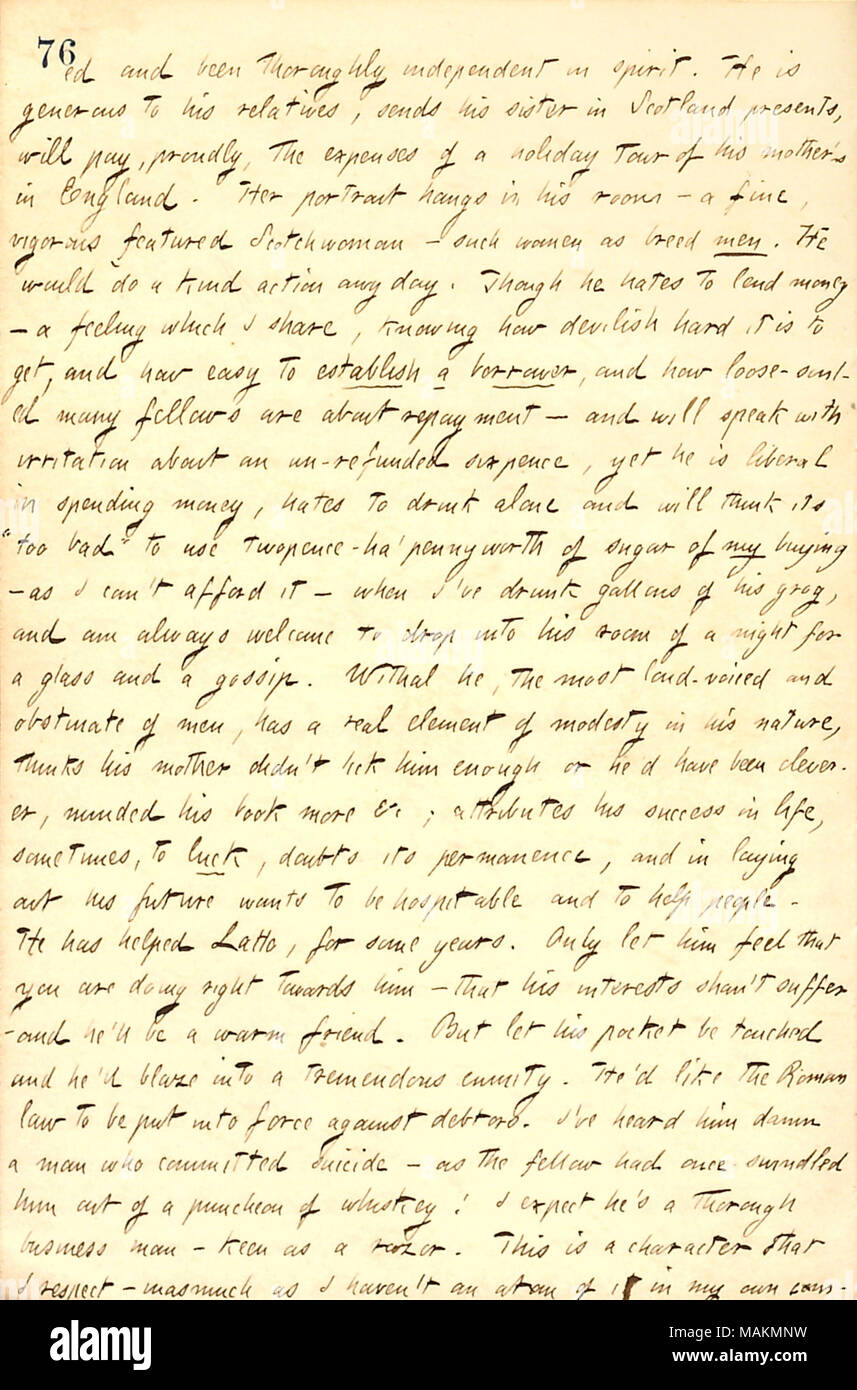 76
ed and been thoroughly independent in spirit. He is
generous to his relatives, sends his sister in Scotland presents,
will pay, proudly, the expenses of a holiday tour of his mother's
in England. Her portrait hangs in his room - a fine,
vigorous featured Scotchwoman - such women as breed men. He
would do a kind action any day. Though he hates to lend money
- a feeling which I share, knowing how devilish hard it is to
get, and how easy to establish a borrower, and how loose-soul-
ed many fellows are about repayment - and will speak with
irritation about an un-refunded sixpence, yet he is liberal
in spending money, hates to drink alone and will think its
"too bad" to use twopence-ha'pennyworth of sugar of my buying
- as I can't afford it - when I've drunk gallons of his grog,
and am always welcome to drop into his room of a night for
a glass and a gossip. Withal he, the most loud-voiced and
obstinate of men, has a real element of modesty in his nature,
thinks his mother didn't lick him enough or he'd have been clever-
er, minded his book more &c; attributes his success in life,
sometimes, to luck, doubts its permanence, and in laying
out his future wants to be hospitable and to help people.
He has helped Latto, for some years. Only let him feel that
you are doing right towards him - that his interests shan't suffer
- and he'll be a warm friend. But let his pocket be touched
and he'd blaze into a tremendous enmity. He'd like the Roman
law to be put into force against debtors. I've heard him damn
a man who committed suicide - as the fellow had once swindled
him out of a puncheon of whiskey! I expect he's a thorough
business man - keen as a razor. This is a character that
I respect - inasmuch as I haven't an atom of it in my own com-
alamy
Image ID: MAKMNW
www.alamy.com